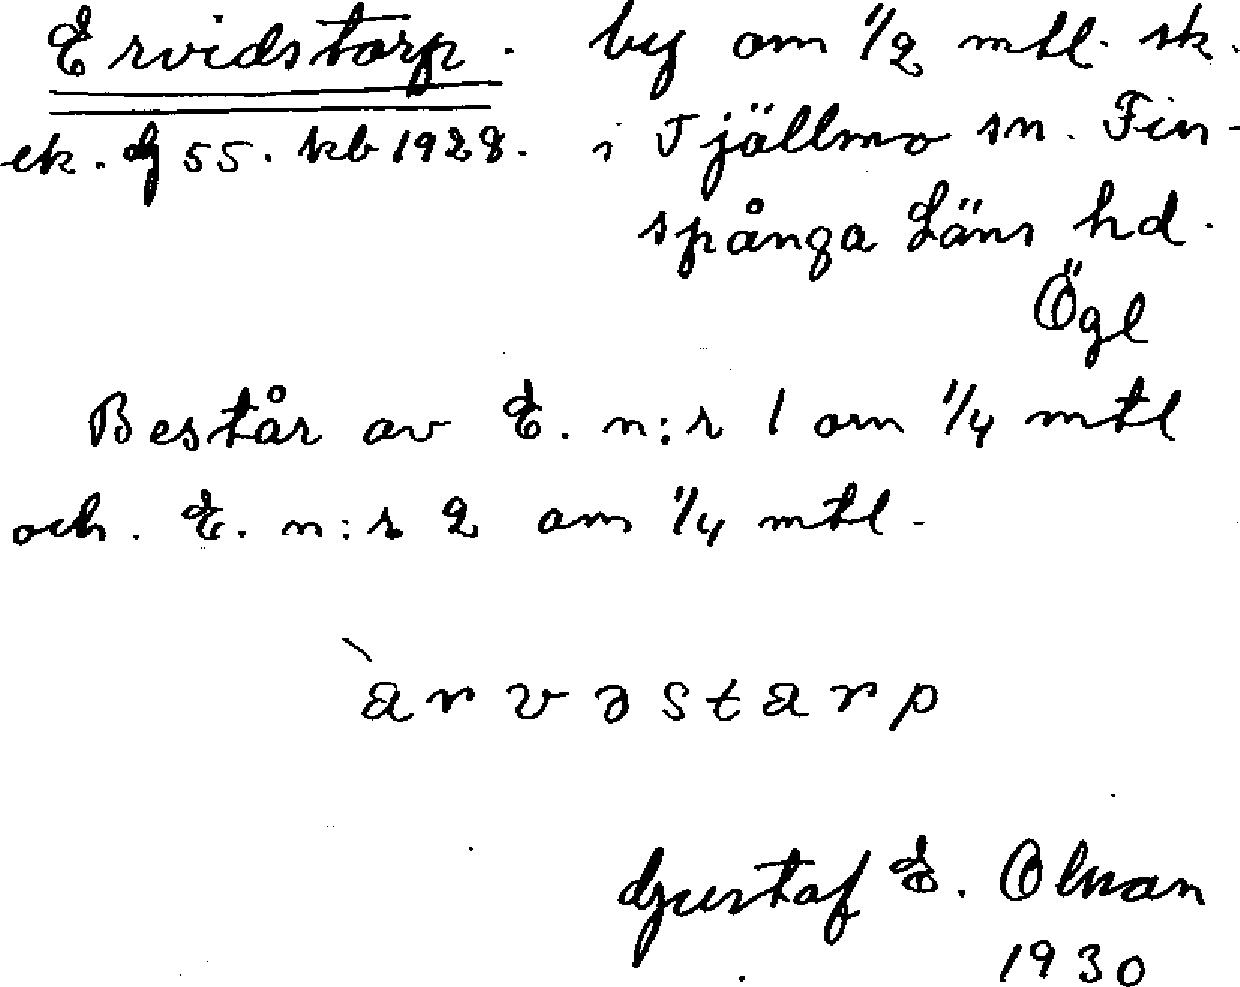 Ervidstorp. by om 1/2 mtl. sk.
ek. bl 55. kb 1928. i Tjällmo sn. Fin-
spånga Läns hd.
Ögl
Består av E. n:r 1 om 1/4 mtl
och. E. n:r 2 om 1/4 mtl.
̀arvəstarp
Gustaf E. Olman
1930